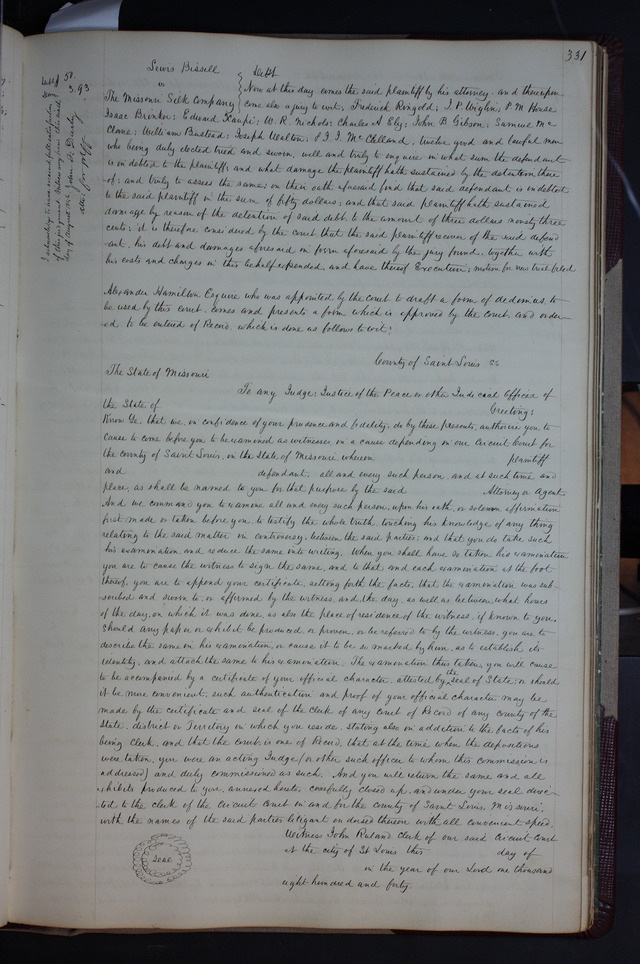 331
Lewis Bissell
vs
The Missouri Silk Company
Debt
Now at this day comes the said plaintiff by his attorney, and thereupon
come also a jury to wit; Frederick Ringold; J. P. Wiglin; P. M. House
Isaac Brinker; Edward Laupi; W. R. Nichols; Charles A Ely; John B Gibson; Samuel Mc
Clane; William Bustead; Joseph Walton, & J. J. McClelland, twelve good and lawful men
who being duly elected tried and sworn, well and truly to enquire in what sum the defendant
is indebted to the plaintiff; and what damage the plaintiff hath sustained by the detention there
of; and truly to assess the same; on their oath aforesaid find that said defendant is indebted
to the said plaintiff in the sum of fifty dollars; and that said plaintiff hath sustained
damage by reason of the detention of said debt, to the amount of three dollars ninety three
cents; it is therefore considered by the court that the said plaintiff recover of the said defend
ant, his debt and damages aforesaid in form aforesaid by the jury found, together with
his costs and charges in this behalf expended, and have thereof Execution; motion for new trial filed
Debt 50.
3.93
I acknowledge to have received full satisfaction
of this judgment
day of August
atty for plff
Alexander Hamilton Esquire who was appointed by the court to draft a form of dedimus to
be used by this court, comes and presents a form which is approved by the court, and order
ed to be entered of Record, which is done as follows to wit;
County of Saint Louis ss
The State of Missouri
To any Judge; Justice of the Peace or other Judicial Officer of
the State of Greeting;
Know Ye, that we, in confidence of your prudence and fidelity, do by these presents, authorise you to
cause to come before you to be examined as witnesses, in a cause depending in our Circuit Court for
the county of Saint Louis, in the State of Missouri wherein plaintiff
and defendant, all and every such person, and at such time and
place, as shall be named to you for that purpose by the said Attorney or Agent
And we command you to examine all and every such person, upon his oath, or solemn affirmation
first made or taken before you, to testify the whole truth touching his knowledge of any thing
relating to the said matter in controversy, between the said parties; and that you do take such
his examination and reduce the same into writing. When you shall have so taken his examination
you are to cause the witness to sign the same, and to that and each examination at the foot
thereof, you are to append your certificate, setting forth the facts, that the examination was sub-
scribed and sworn to, or affirmed by the witness, and the day, as well as between what hours
of the day, on which it was done, as also the place of residence of the witness, if known to you.
Should any paper or exhibit be produced, or proven, or be referred to by the witness, you are to
describe the same in his examination, or cause it to be so marked by him, as to establish its
identity, and attach the same to his examination. The examination thus taken, you will cause
to be accompanied by a certificate of your official character attested by the seal of State; or should
it be more convenient, such authentication and proof of your official character may be
made by the certificate and seal of the clerk of any court of Record of any county of the
State, district or Territory in which you reside, stating also in addition to the facts of his
being clerk, and that the court is one of Record, that at the time when the depositions
were taken, you were an acting Judge (or other such officer to whom this commission is
addressed) and duly commissioned as such. And you will return the same and all
exhibits produced to you, annexed hereto, carefully closed up, and under your seal direc
ted, to the clerk of the circuit court in and for the county of Saint Louis, Missouri,
with the names of the said parties litigant endorsed thereon with all convenient speed.
Witness John Ruland clerk of our said Circuit Court
at the city of St Louis this day of
in the year of our Lord one thousand
eight hundred and forty
Seal